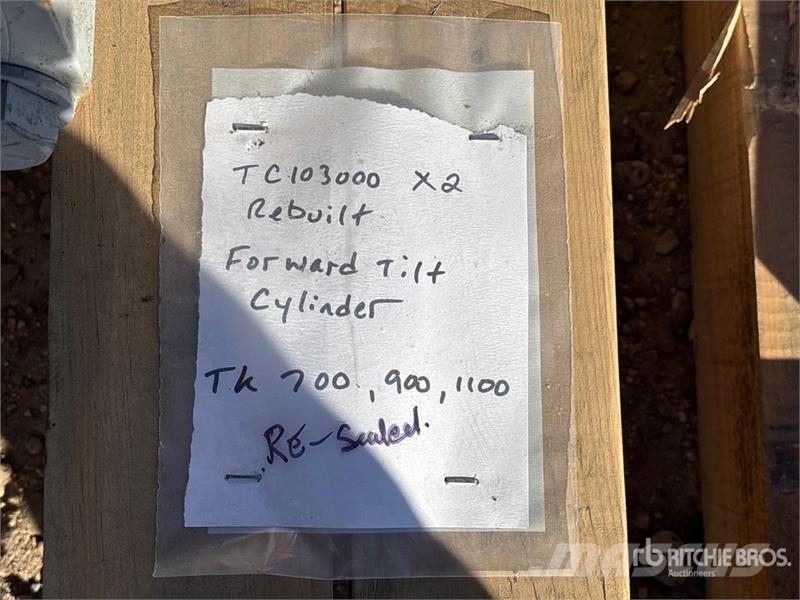 TC103000 X2
Rebuilt
Forward Tilt
Cylinder
Tk 700, 900, 1100
RE-Sealed.
MASCUS
rb RITCHIE BROS.
Auctioneers